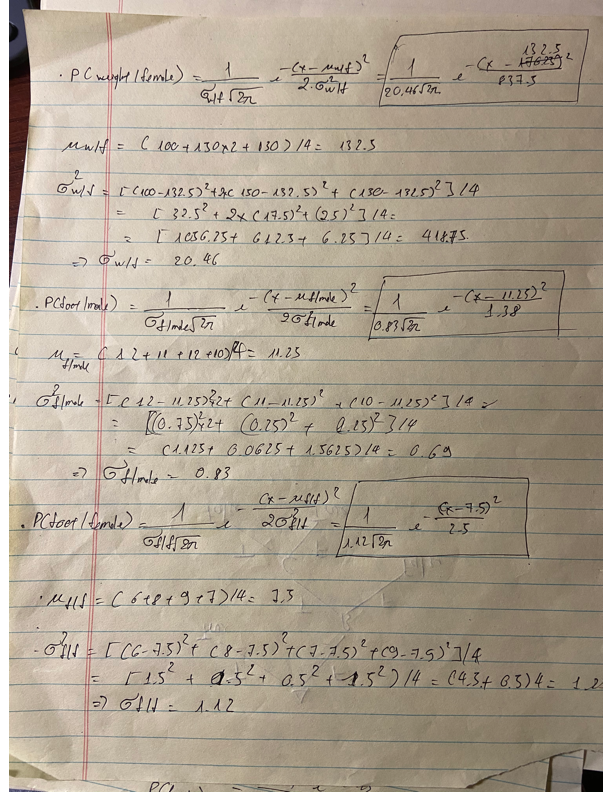 . P(weight/female) = 1/(σw/f√2π) e^-(x-μw/f)²/(2.σ²w/f) = 1/(20.46√2π) e^-(x - 132.5)²/837.5
μw/f = (100+150×2+130)/4 = 132.5
σ²w/f = [(100-132.5)²+2×(150-132.5)² + (130-132.5)²]/4
= [32.5² + 2×(17.5)² + (2.5)²]/4 =
= [1056.25 + 612.5 + 6.25]/4 = 418.75
=> σw/f = 20.46
. P(foot/male) = 1/(σf/male√2π) e^-(x-μf/male)²/(2σ²f/male) = 1/(0.83√2π) e^-(x-11.25)²/1.38
μf/male = (12+11+12+10)/4 = 11.25
σ²f/male = [(12-11.25)²×2+(11-11.25)²+(10-11.25)²]/4 =
= [(0.75)²×2+(0.25)²+(1.25)²]/4
= (1.125+0.0625+1.5625)/4 = 0.69
=> σf/male = 0.83
. P(foot/female) = 1/(σf/f√2π) e^-(x-μf/f)²/(2σ²f/f) = 1/(1.12√2π) e^-(x-7.5)²/2.5
. μf/f = (6+8+9+7)/4 = 7.5
- σ²f/f = [(6-7.5)²+(8-7.5)²+(7-7.5)²+(9-7.5)²]/4
= [1.5² + 0.5² + 0.5² + 1.5²)/4 = (4.5+0.5)4 = 1.2
=> σf/f = 1.12